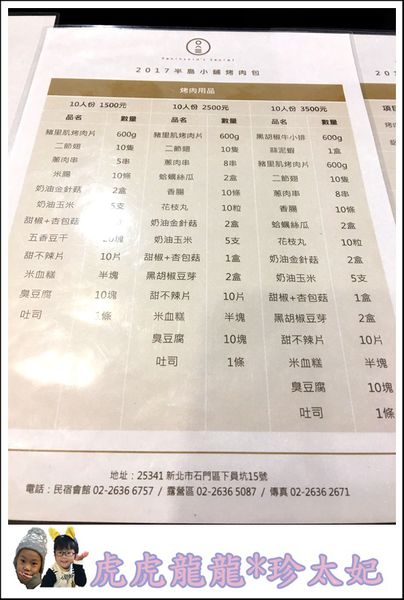 Peninsula's Secret
2017半島小舖烤肉包
烤肉用品
10人份 1500元 10人份 2500元 10人份 3500元 項目
品名 數量 品名 數量 品名 數量
豬里肌烤肉片 600g 豬里肌烤肉片 600g 黑胡椒牛小排 600g
二節翅 10隻 二節翅 10隻 絲泥蝦 1盒
蔥肉串 5串 蔥肉串 8串 豬里肌烤肉片 600g
米腸 10條 蛤蠣絲瓜 2盒 二節翅 10隻
奶油金針菇 2盒 香腸 10條 蔥肉串 8串
奶油玉米 5支 花枝丸 10粒 香腸 10條
甜椒+杏包菇 奶油金針菇 2盒 蛤蠣絲瓜 2盒
五香豆干 10塊 奶油玉米 5支 花枝丸 10粒
甜不辣片 10片 甜椒+杏包菇 1盒 奶油金針菇 2盒
米血糕 半塊 黑胡椒豆芽 2盒 奶油玉米 5支
臭豆腐 10塊 甜不辣片 10片 甜椒+杏包菇 1盒
吐司 1條 米血糕 半塊 黑胡椒豆芽 2盒
臭豆腐 10塊 甜不辣片 10片
吐司 1條 米血糕 半塊
臭豆腐 10塊
吐司 1條
地址：25341 新北市石門區下員坑15號
電話：民宿會館 02-2636 6757 / 露營區 02-2636 5087 / 傳真 02-2636 2671
虎虎龍龍*珍太妃